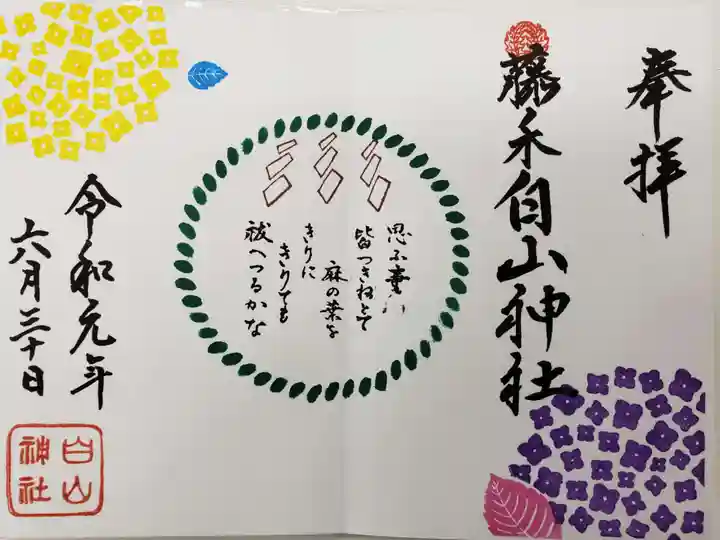 奉拝
藤永白山神社
思ふ事
皆つきねとて
麻の葉を
きりに
きりても
祓へつるかな
令和元年
六月三十日
白山
神社